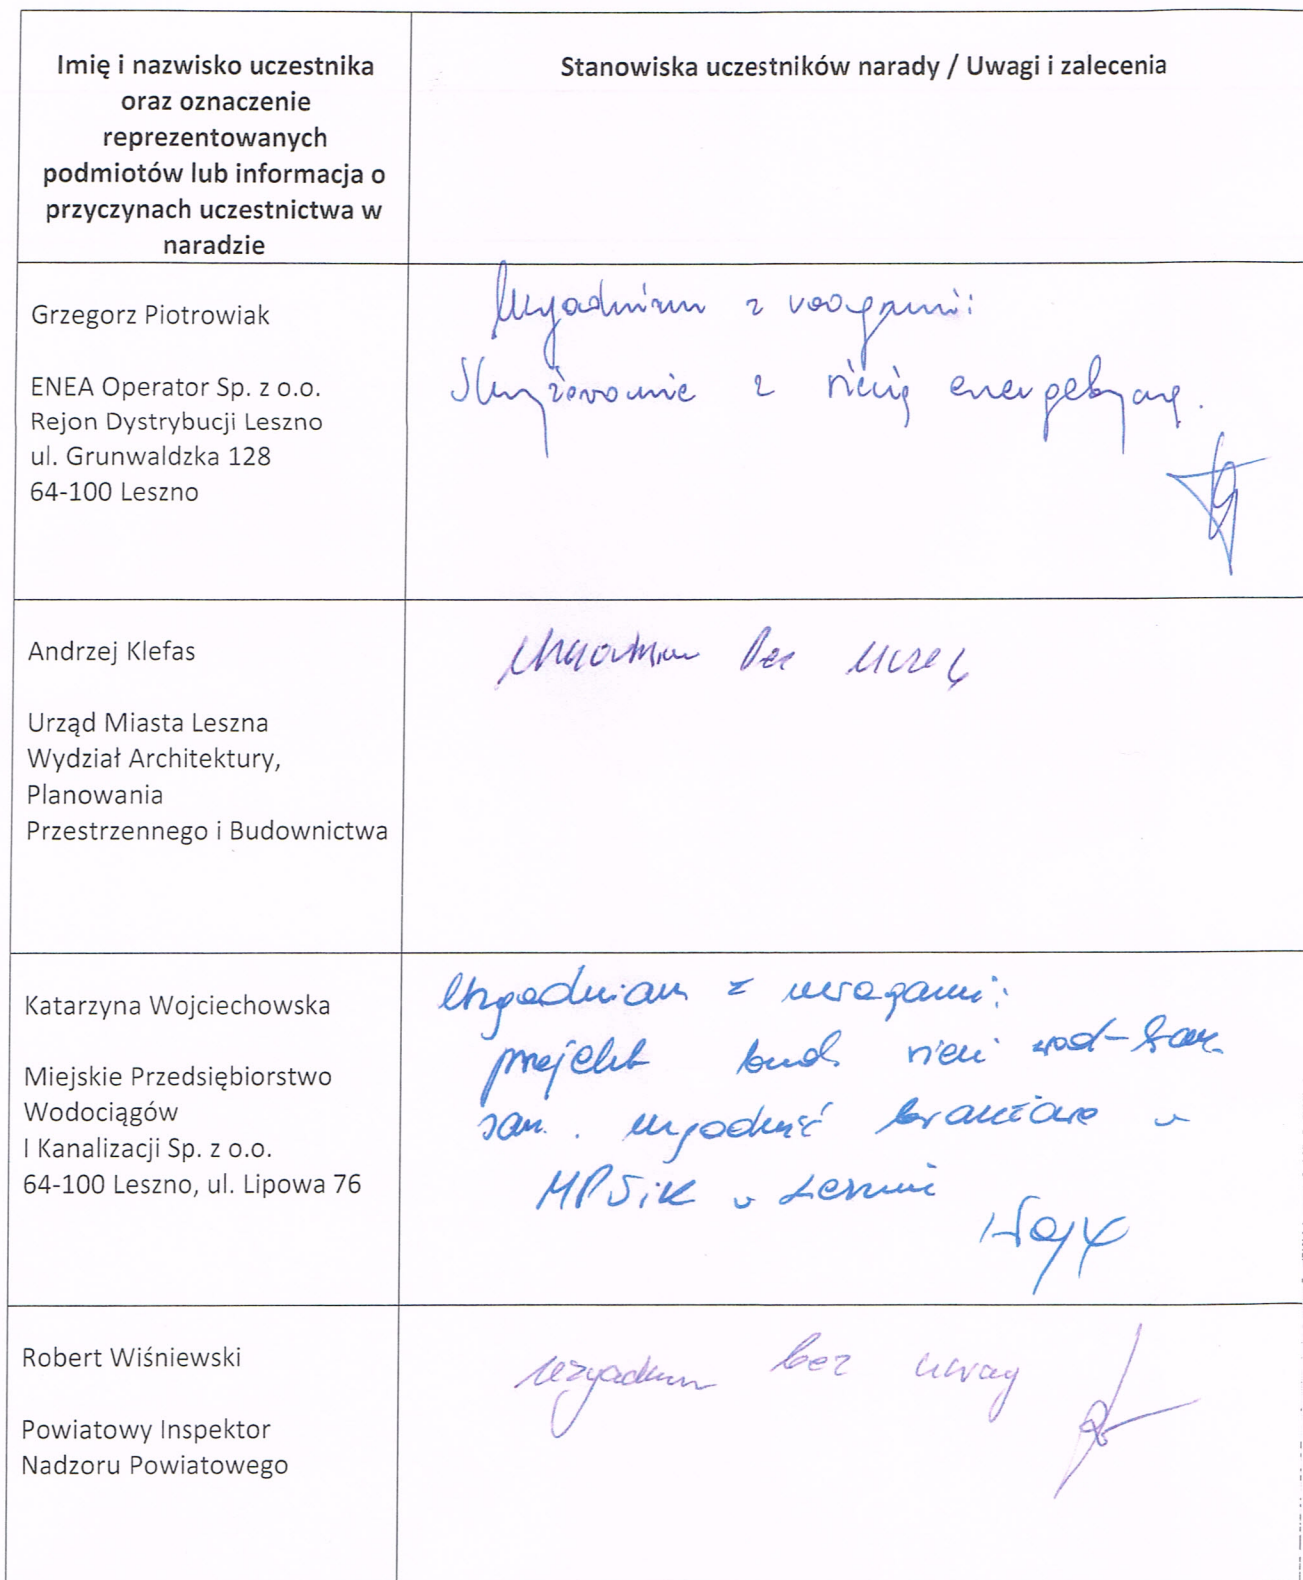 Imię i nazwisko uczestnika
oraz oznaczenie
reprezentowanych
podmiotów lub informacja o
przyczynach uczestnictwa w
naradzie
Stanowiska uczestników narady / Uwagi i zalecenia
Grzegorz Piotrowiak
ENEA Operator Sp. z o.o.
Rejon Dystrybucji Leszno
ul. Grunwaldzka 128
64-100 Leszno
Uzgadniam z uwagami:
Skrzyżowanie z siecią energetyczną.
Andrzej Klefas
Urząd Miasta Leszna
Wydział Architektury,
Planowania
Przestrzennego i Budownictwa
Uzgadniam bez uwag
Katarzyna Wojciechowska
Miejskie Przedsiębiorstwo
Wodociągów
I Kanalizacji Sp. z o.o.
64-100 Leszno, ul. Lipowa 76
Uzgadniam z uwagami:
projekt bud. sieci wod-kan.
san. uzgodnić branżowo w
MPWiK w Lesznie
Robert Wiśniewski
Powiatowy Inspektor
Nadzoru Powiatowego
uzgadniam bez uwag